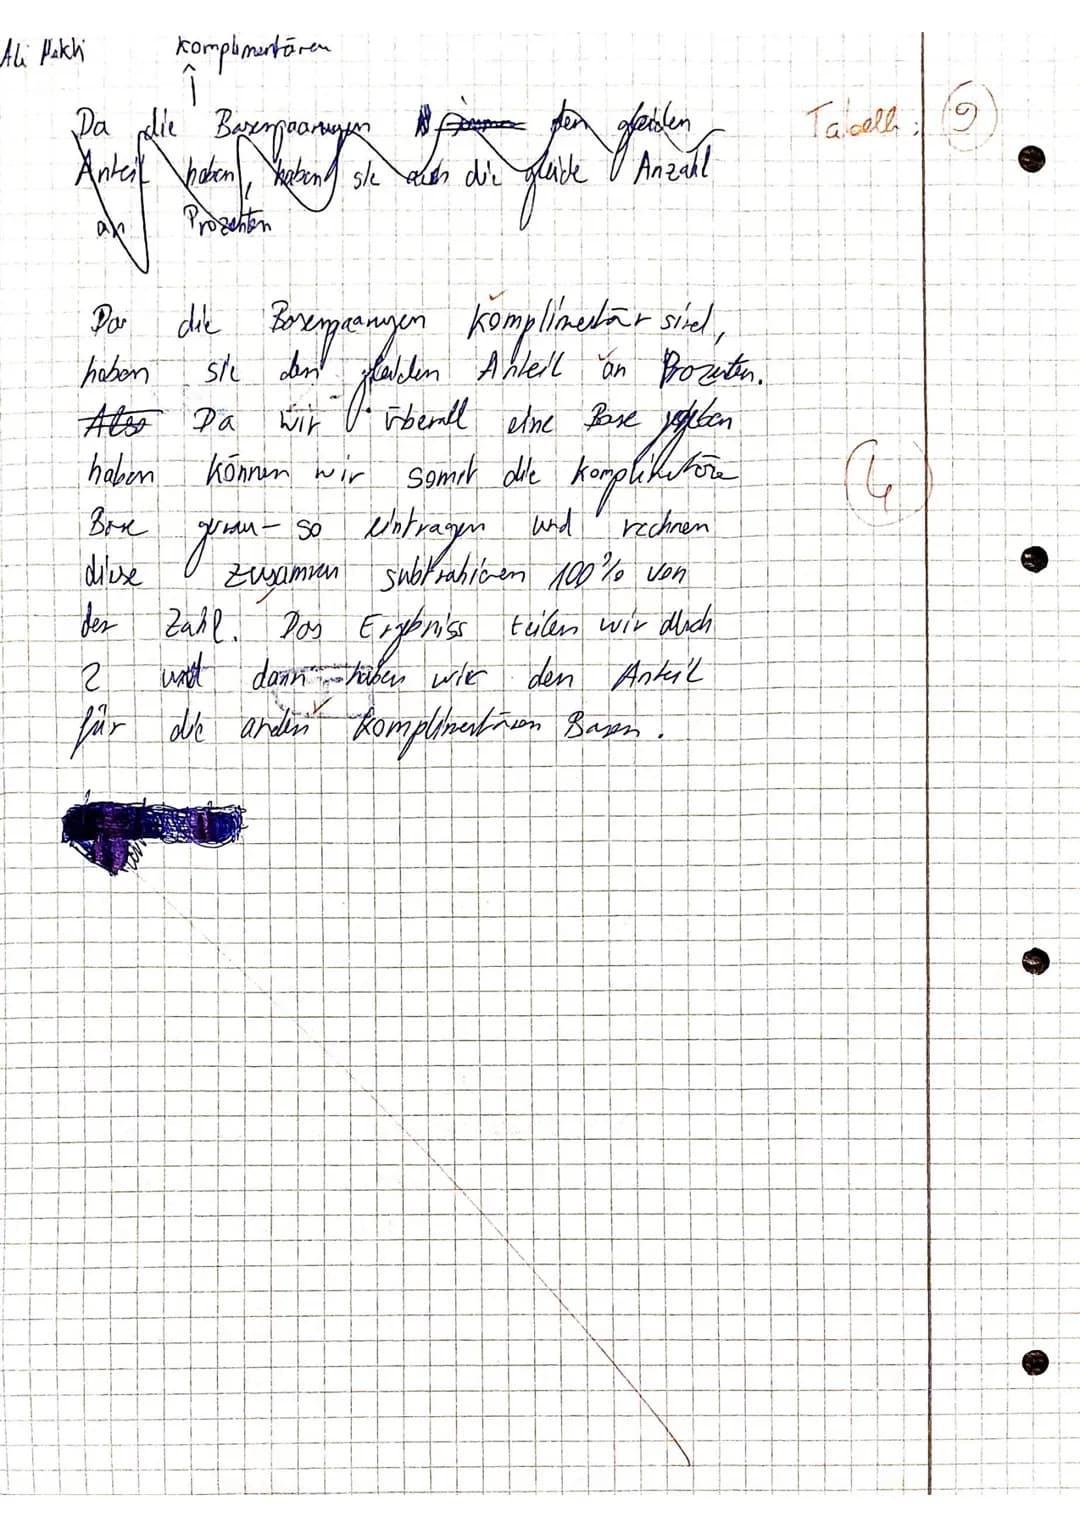 Ali
komplimentären
Da die Basenpaarungen den gleichen
Anteil haben, haben sie auch die gleiche Anzahl
an Prozenten
Tabelle: 9
Da die Basenpaarungen komplimentär sind,
haben sie den gleichen Anteil an Prozenten.
Also Da wir überall eine Base gegeben
haben können wir somit die komplimentäre
Base genau- so eintragen und rechnen
diese zusammen subtrahieren 100% von
der Zahl. Das Ergebniss teilen wir durch
2 und dann haben wir den Anteil
für die anden komplimentären Basen.
4